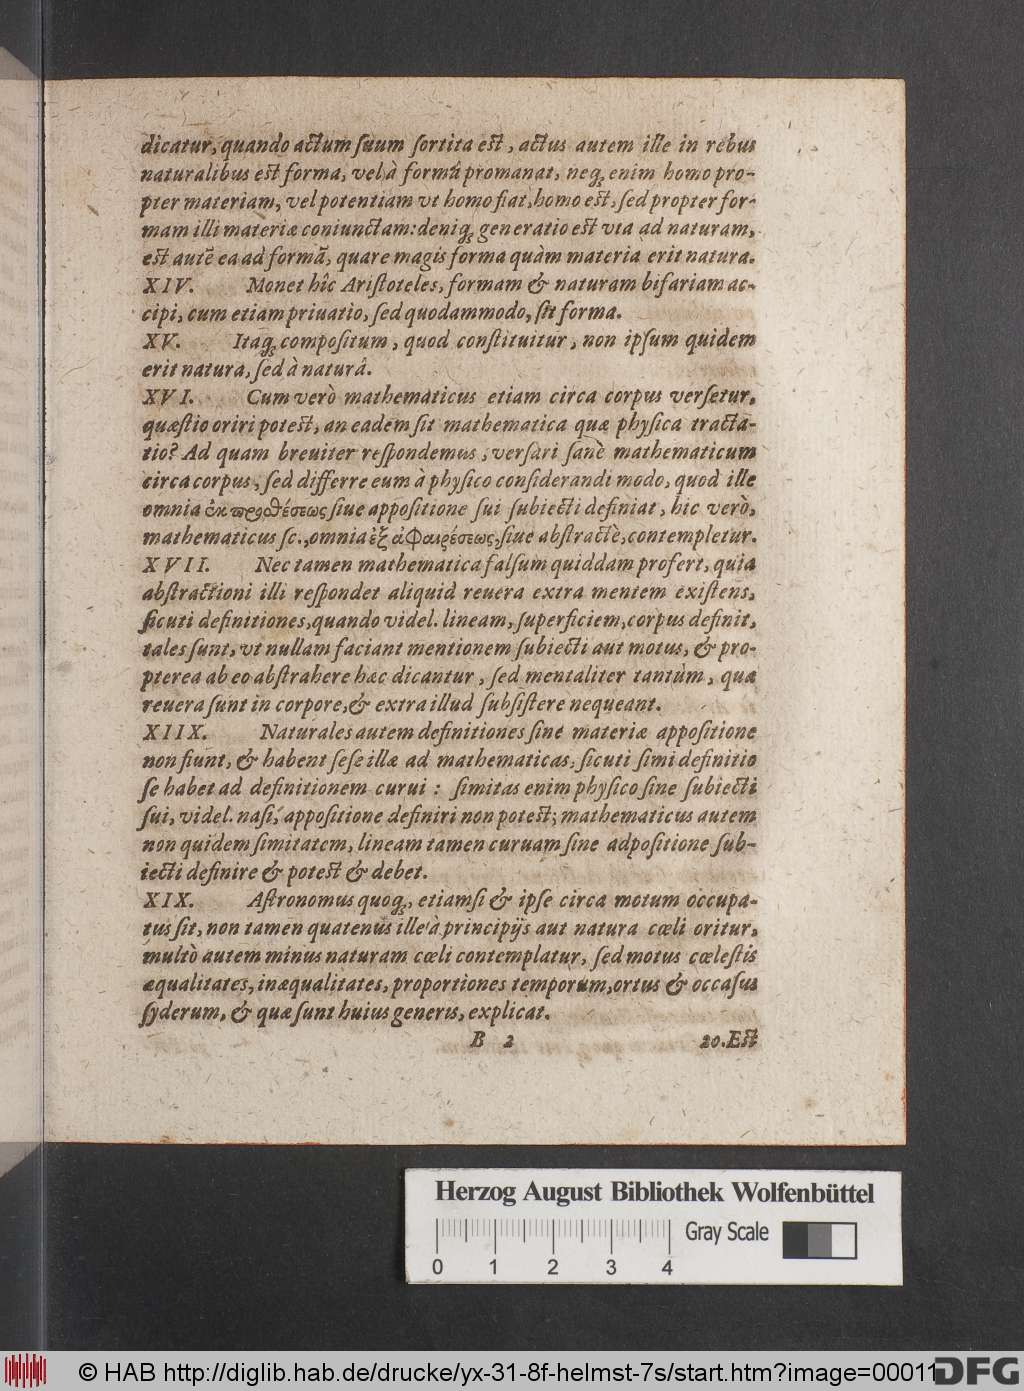 dicatur, quando actum ſuum ſortita eſt, actus autem ille in rebus
naturalibus eſt forma, vel à formâ promanat, neq; enim homo pro-
pter materiam, vel potentiam vt homo fiat, homo eſt, ſed propter for-
mam illi materiæ coniunctam: deniq; generatio eſt via ad naturam,
eſt autē ea ad formā, quare magis forma quàm materia erit natura.
XIV. Monet hîc Ariſtoteles, formam & naturam bifariam ac-
cipi, cum etiam priuatio, ſed quodammodo, ſit forma.
XV. Itaq; compoſitum, quod conſtituitur, non ipſum quidem
erit natura, ſed à naturâ.
XVI. Cum verò mathematicus etiam circa corpus verſetur,
quæſtio oriri poteſt, an eadem ſit mathematica quæ phyſica tracta-
tio? Ad quam breuiter reſpondemus, verſari ſanè mathematicum
circa corpus, ſed differre eum à phyſico conſiderandi modo, quod ille
omnia ἐκ προσθέσεως ſiue appoſitione ſui ſubiecti definiat, hic verò,
mathematicus ſc., omnia ἐξ ἀφαιρέσεως, ſiue abſtractè, contempletur.
XVII. Nec tamen mathematica falſum quiddam profert, quia
abſtractioni illi reſpondet aliquid reuera extra mentem exiſtens,
ſicuti definitiones, quando videl. lineam, ſuperficiem, corpus definit,
tales ſunt, vt nullam faciant mentionem ſubiecti aut motus, & pro-
pterea ab eo abſtrahere hæc dicantur, ſed mentaliter tantùm, quæ
reuera ſunt in corpore, & extra illud ſubſiſtere nequeant.
XIIX. Naturales autem definitiones ſine materiæ appoſitione
non fiunt, & habent ſeſe illæ ad mathematicas, ſicuti ſimi definitio
ſe habet ad definitionem curui: ſimitas enim phyſico ſine ſubiecti
ſui, videl. naſi, appoſitione definiri non poteſt; mathematicus autem
non quidem ſimitatem, lineam tamen curuam ſine adpoſitione ſub-
iecti definire & poteſt & debet.
XIX. Aſtronomus quoq;, etiamſi & ipſe circa motum occupa-
tus ſit, non tamen quatenus ille à principijs aut natura cœli oritur,
multò autem minus naturam cœli contemplatur, ſed motus cœleſtis
æqualitates, inæqualitates, proportiones temporum, ortus & occaſus
ſyderum, & quæ ſunt huius generis, explicat.
B 2 20. Eſt
Herzog August Bibliothek Wolfenbüttel
Gray Scale
0 1 2 3 4
© HAB http://diglib.hab.de/drucke/yx-31-8f-helmst-7s/start.htm?image=00011
DFG